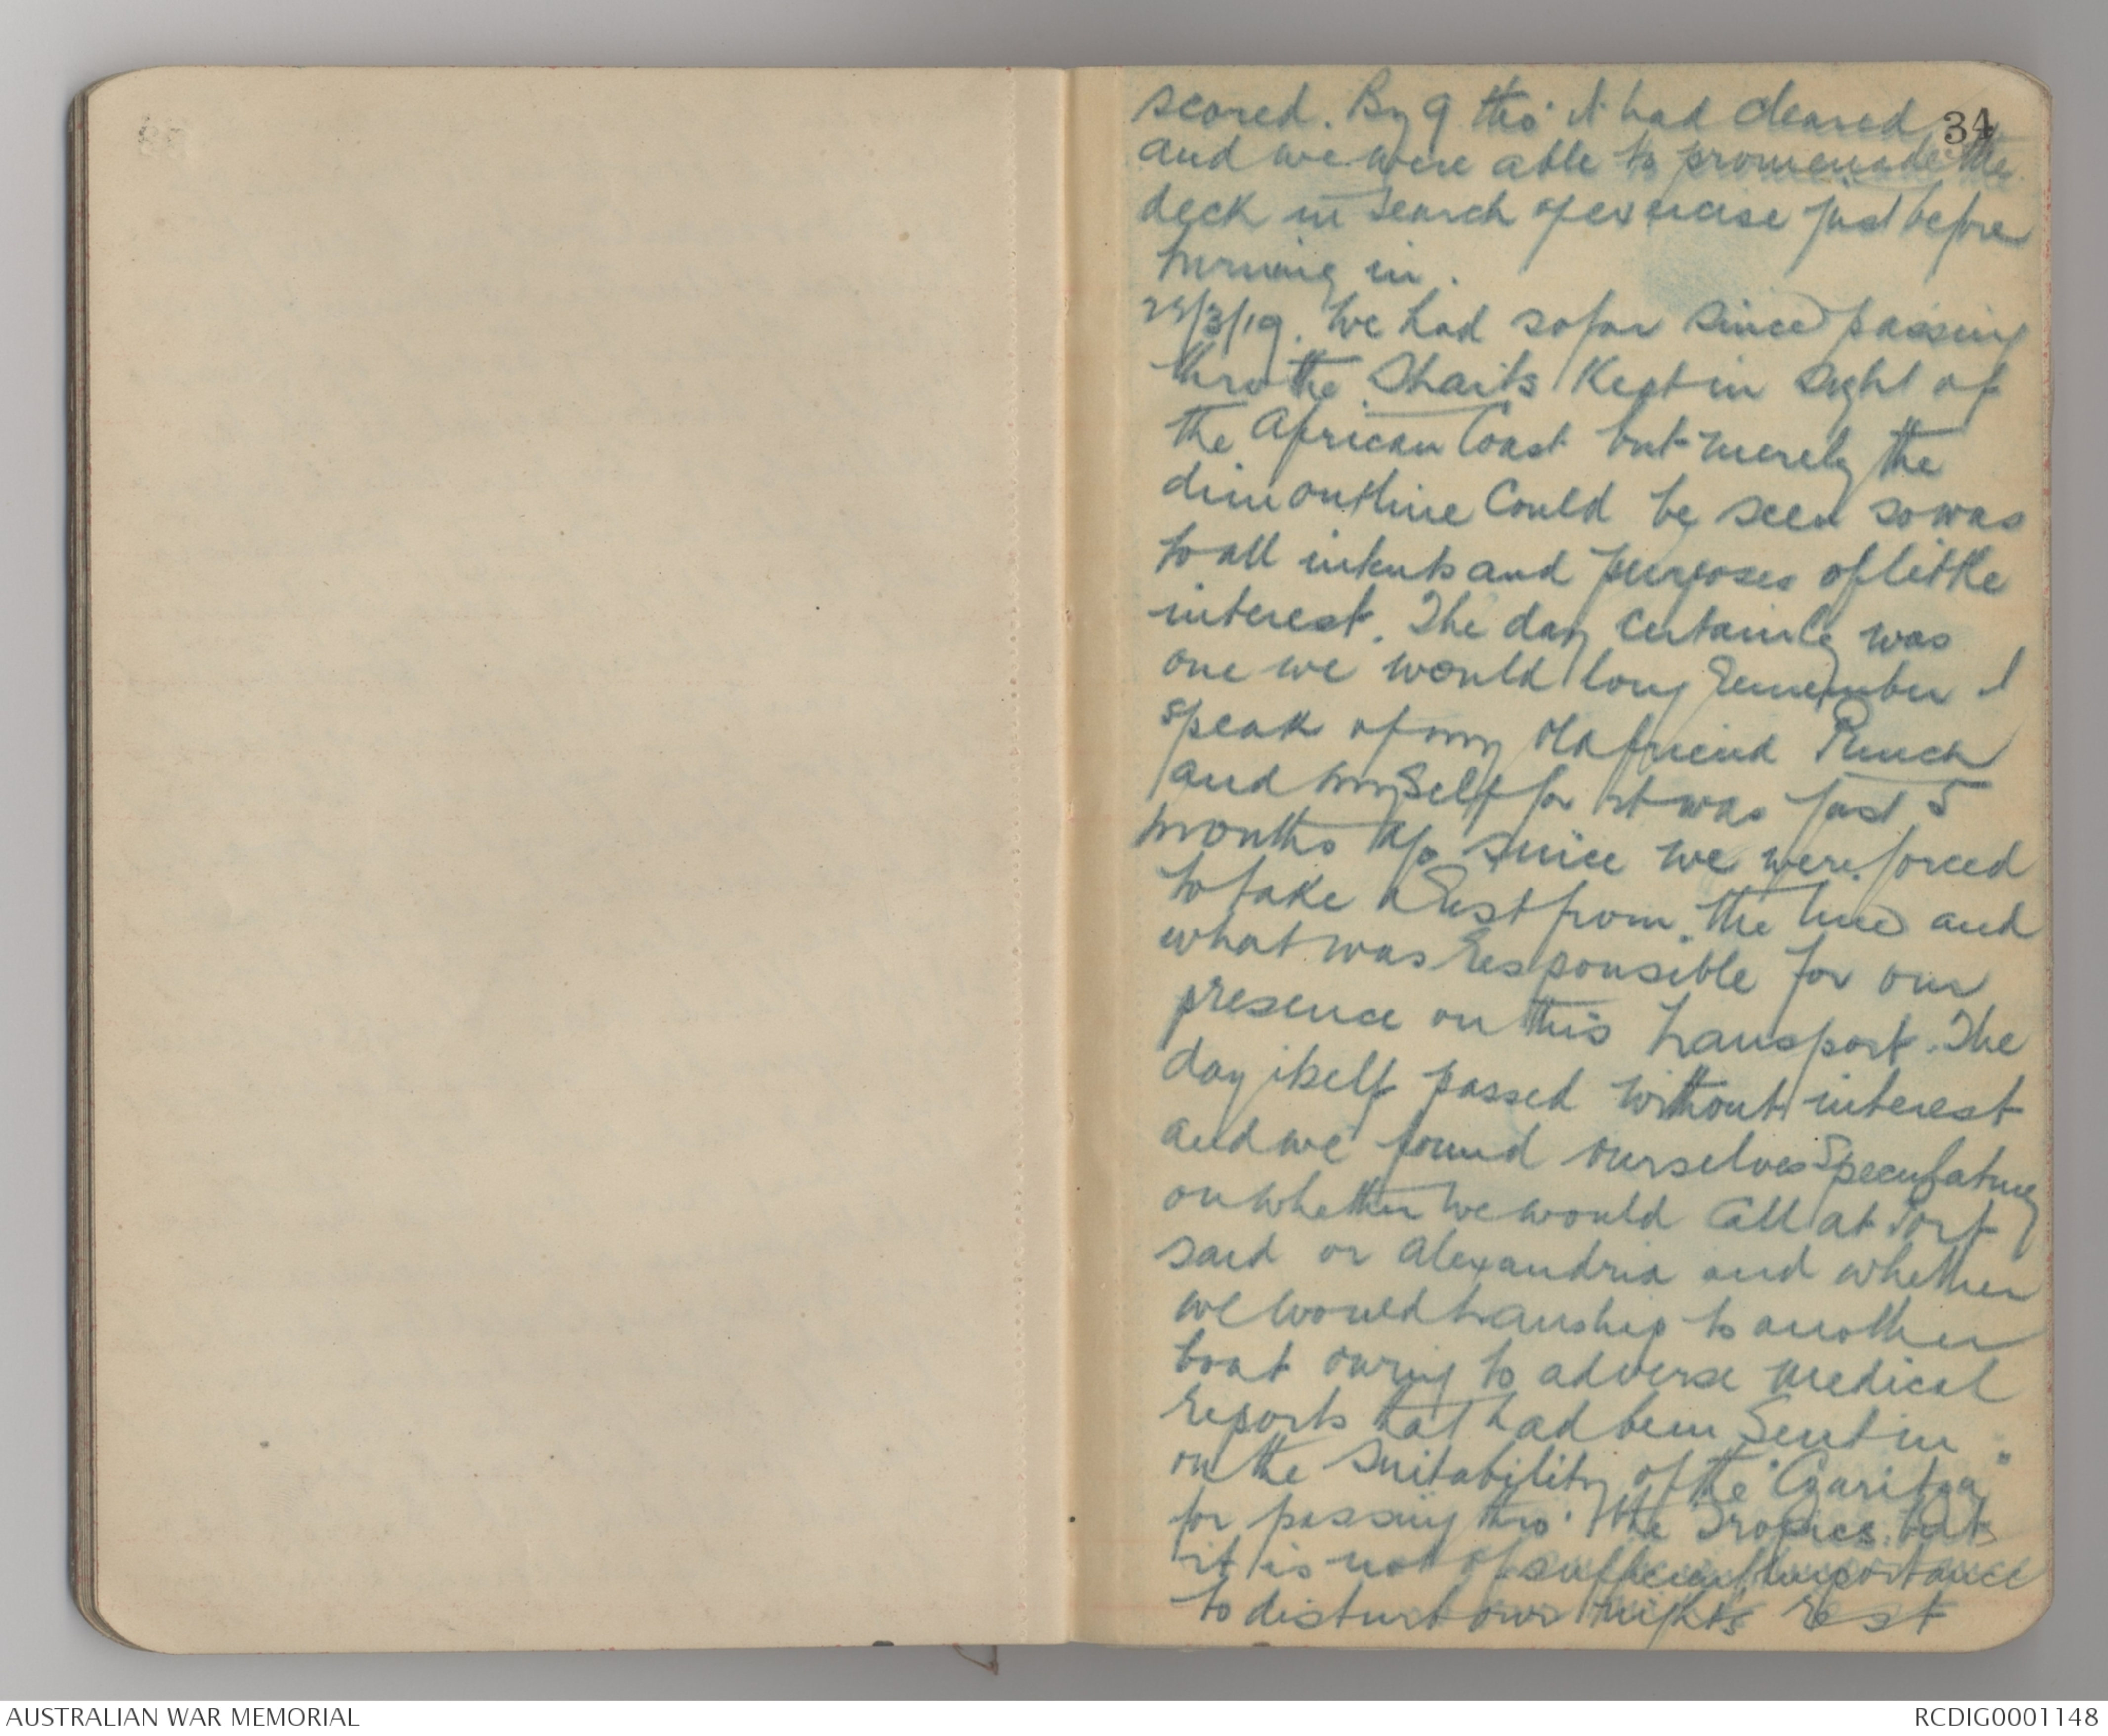 34
scored. By 9 tho' it had cleared
and we were able to promenade the
deck in search of exercise just before
turning in.
/3/19. We had so far since passing
thro the Straits kept in sight of
the African Coast but merely the
dim outline Could be seen so was
to all intents and purposes of little
interest. The day certainly was
one we would long remember I
speak of my old friend Punch
and myself for it was just 5
months ago since we were forced
to take a rest from the line and
what was responsible for our
presence on this transport. The
day itself passed without interest
and we found ourselves Speculating
on whether we would Call at Port
Said or Alexandria and whether
we would tranship to another
boat owing to adverse medical
reports that had been Sent in
on the Suitability of the "Czaritza"
for passing thro' the Tropics. But
it is not of sufficient importance
to disturb our nights rest
AUSTRALIAN WAR MEMORIAL
RCDIG0001148